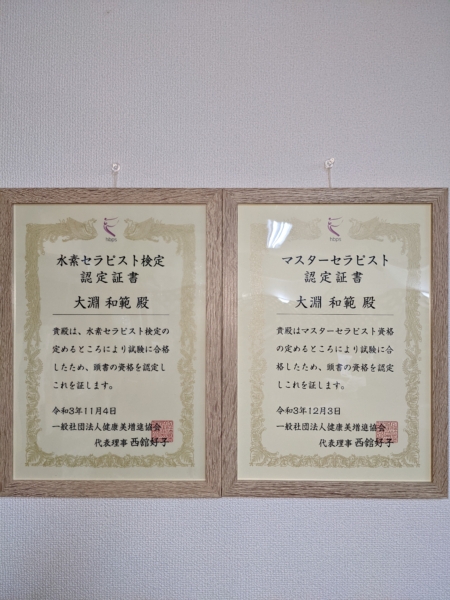 水素セラピスト検定
認定証書
大淵 和範 殿
貴殿は、水素セラピスト検定の
定めるところにより試験に合格
したため、頭書の資格を認定し
これを証します。
令和3年11月4日
一般社団法人健康美増進協会
代表理事 西館好子
マスターセラピスト
認定証書
大淵 和範 殿
貴殿はマスターセラピスト資格
の定めるところにより試験に合
格したため、頭書の資格を認定
しこれを証します。
令和3年12月3日
一般社団法人健康美増進協会
代表理事 西館好子